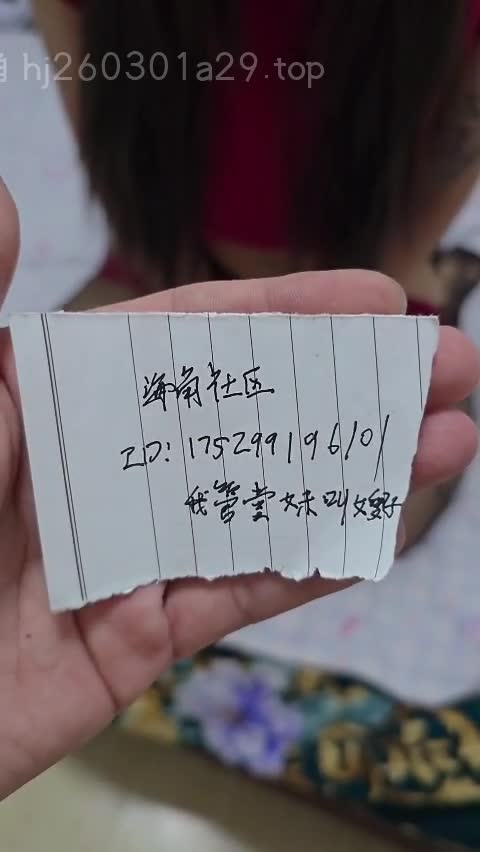 角 hj260301a29.top
海角社区
ID: 175299196101
我管堂妹叫媳婦